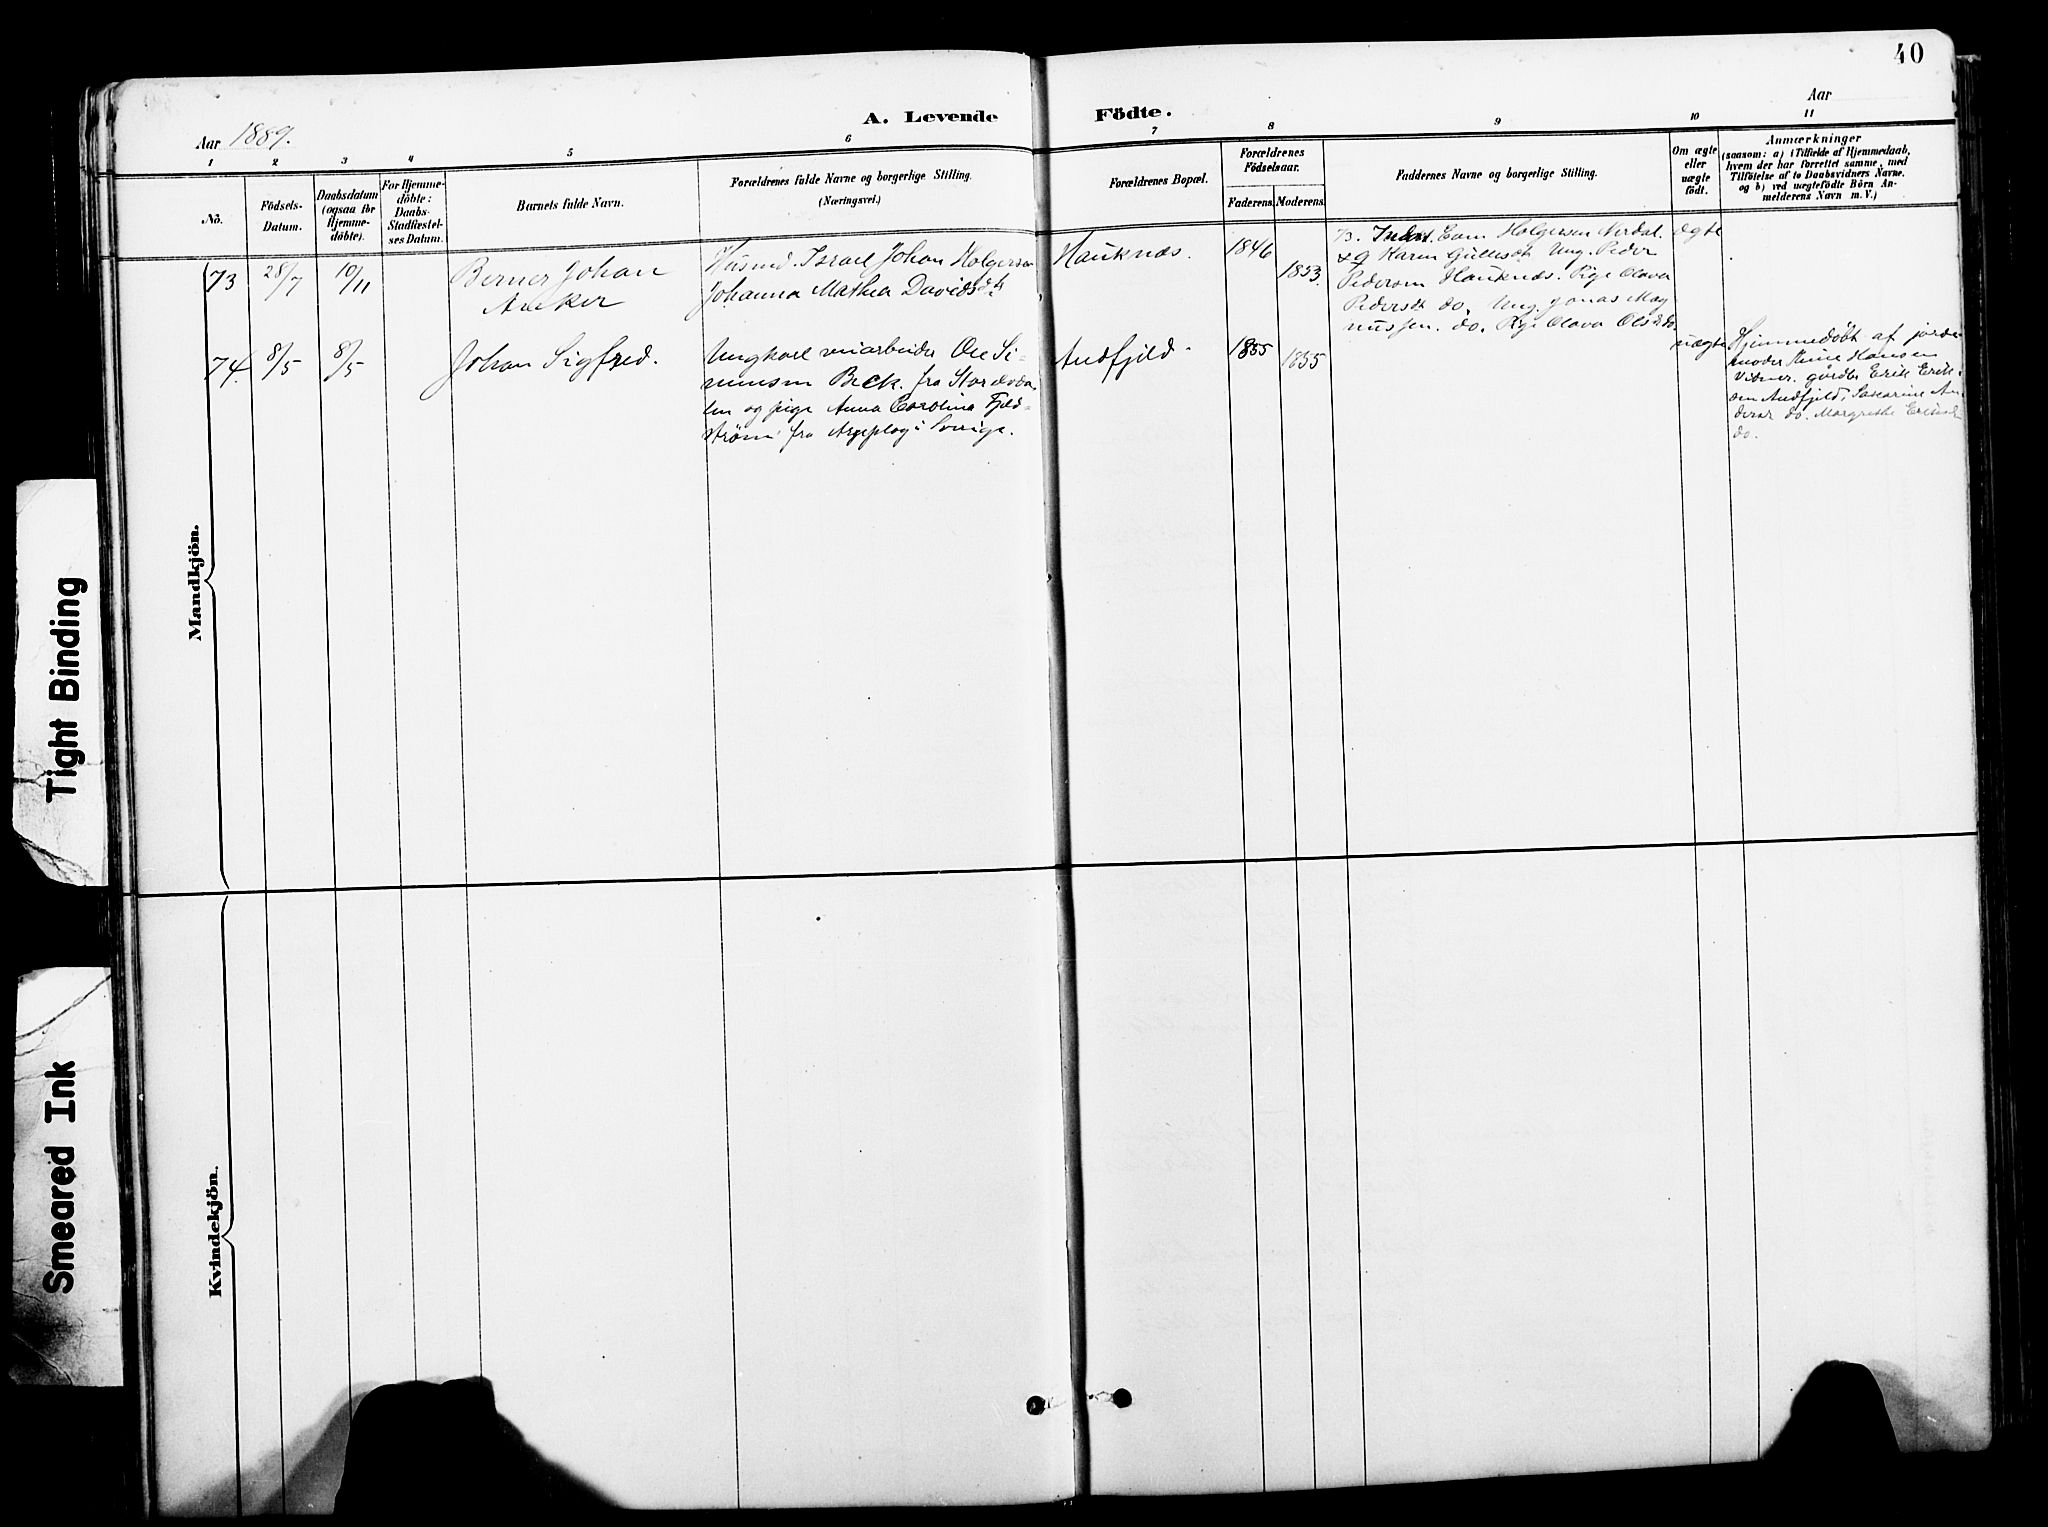 40
A. Levende Födte.
Aar 1889.
Aar
1 2 3 4 5 6 7 8 9 10 11
No.
Födsels-
Datum.
Daabsdatum
(ogsaa for
Hjemme-
döbte).
For Hjemme-
döbte:
Daabs-
Stadfæstel-
ses Datum.
Barnets fulde Navn.
Forældrenes fulde Navne og borgerlige Stilling.
(Næringsvei.)
Forældrenes Bopæl.
Forældrenes
Födselsaar.
Faderens.
Moderens.
Faddernes Navne og borgerlige Stilling.
Om ægte
eller
uægte
födt.
Anmærkninger
(saasom: a) i Tilfælde af Hjemmedaab,
hvem der har forrettet samme, med
Tilföielse af to Daabsvidners Navne.
og b) ved uægtefödte Börn An-
melderens Navn m. V.)
73
28/7
10/11
Berner Johan
Anker
Husmd. Israel Johan Holgersen
Johanna Mathea Davidsdt
Hauknæs.
1846
1853.
Holgersen Nerdal.
Karen Gullesdt Ung. Peder
Pedersen Hauknæs. Pige Olava
Pedersdt do. Ung. Jonas Mag
nussen. do. Pige Olava Olsd do.
ægte
74.
8/5
8/5
Johan Sigfred.
Ungkarl Ole Si-
monsen Beck. fra
len og pige Anna Carolina Fjeld-
strøm fra Arjeplog i Sverige.
Andfjeld.
1855
1855
uægte
Hjemmedøbt af jorde-
moder Hansen
Vidner. gårdbr Erik Erik-
sen Andfjeld,
do. Margrethe
do.
Mandkjön.
Kvindekjön.
Tight Binding
Smeared Ink